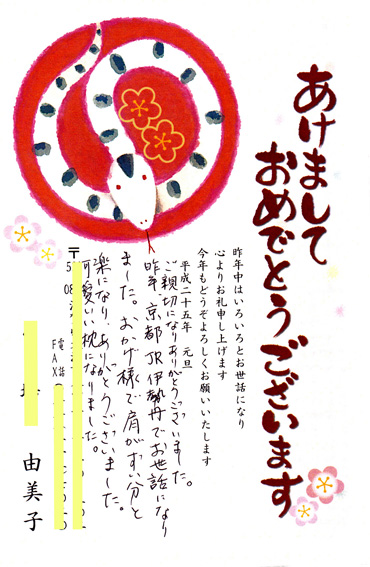 あけまして
おめでとうございます
昨年中はいろいろとお世話になり
心よりお礼申し上げます
今年もどうぞよろしくお願いいたします
平成二十五年 元旦
ご親切になりありがとうございました。
昨年京都JR伊勢丹でお世話になり
ました。おかげ様で肩がずい分と
楽になり、ありがとうございました。
可愛いい枕になりました。
〒
電話
FAX
由美子